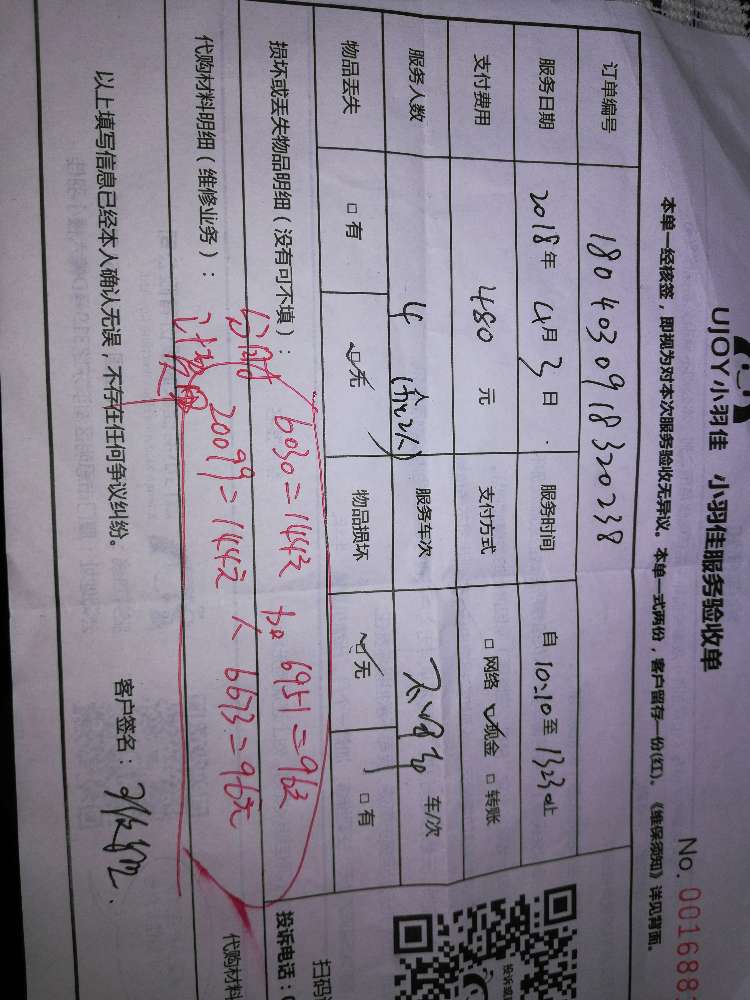 UJOY小羽佳 小羽佳服务验收单
No. 001688
本单一经核签，即视为对本次服务验收无异议。本单一式两份，客户留存一份(红)。《维保须知》详见背面。
订单编号 1804030918320238
服务日期 2018年4月3日 服务时间 自10:10至1323止
支付费用 480元 支付方式 □网络 ☑现金 □转账
服务人数 4 服务车次 车/次
物品丢失 □有 ☑无 物品损坏 ☑无 □有
损坏或丢失物品明细（没有可不填）：
6030=144元 6951=96元
代购材料明细（维修业务）：
20099=144元 6673=96元
代购材料
以上填写信息已经本人确认无误，不存在任何争议纠纷。
客户签名：
投诉电话：
扫码